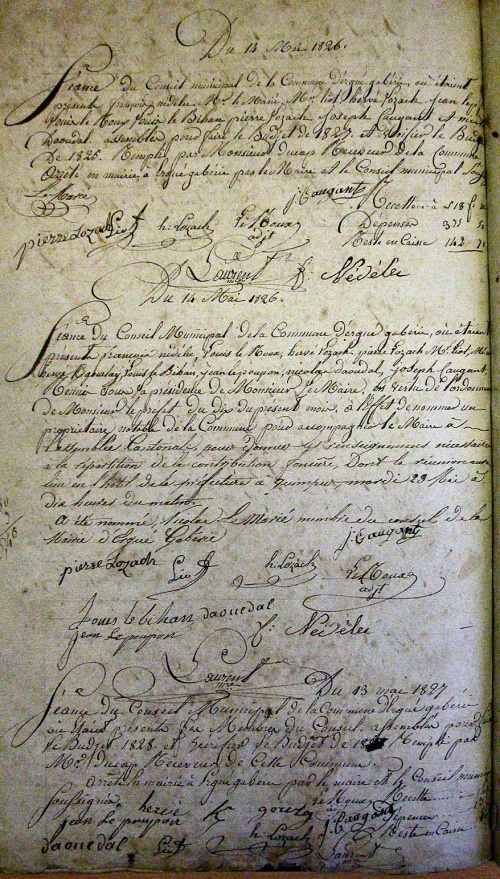 Du 14 Mai 1826.
Séance du Conseil municipal de la Commune d'ergue gaberic, ou étaient
présents françois nédelec, Mr. le Maire, Mr. Liot, hervé Lozach, Jean
Louis le Roux, Louis le Bihan, pierre Lozach, Joseph Caugant et
Daoudal. assemblés pour faire le Budjet de 1827. et vérifier le
De 1825. Remplie par Monsieur ducap Receveur de la Commune
Arrêté en mairie, à Ergue gaberic par le Maire et le Conseil municipal
Le Maire
j. Caugant
Recettes à 518 f
pierre Lozach Liot h: Lozach Le Roux
adjt
Dépenses 375
Reste en Caisse 142
Laurent
mre
f: Nédélec
Du 14 Mai 1826.
Séance du Conseil Municipal de la Commune d'ergue gaberic, ou étaient
présents françois nédélec, Louis le Roux, hervé Lozach, pierre Lozach Mr. Liot,
hervé Louis le Bihan, jean le poupon, nicolas daoudal, joseph Caugant.
Réunis sous la présidence de Monsieur le Maire, en vertu de l'ordonnance
de Monsieur le prefet du dix du present mois, à l'effet de nommer un
propriétaire notable de la Commune pour accompagner le Maire à
l'assemblée Cantonale, pour donner les renseignements nécessaires
a la répartition de la contribution foncière. Dont la réunion aura
lieu en l'hotel de la préfecture à quimper, mardi 23 Mai à
dix heures du matin.
A été nommé, Nicolas Le Marié membre du conseil de la
Mairie d'Ergué Gabéric
j. Caugant
pierre Lozach Liot h. Lozach Le Roux
adjt
Louis le bihan daouedal
jean Le poupon f: Nédélec
Laurent
mre
Du 13 mai 1827
Séance du Conseil Municipal de la Commune d'ergue gaberic
ou étaient présents les Membres du Conseil. assemblés pour
le Budjet 1828. et vérifier le Budjet de Remplie par
Mr. ducap Receveur de Cette Commune.
Arrêté en mairie à Ergue gaberic par le maire et le Conseil
soussignés hervé
Le Roux Recette
jean Le poupon j. Caugant Dépense
daouedal Liot h Lozach Reste en Caisse
Laurent
mre